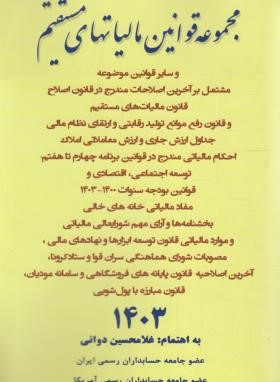 مجموعه قوانین مالیاتهای مستقیم
و سایر قوانین موضوعه
مشتمل بر آخرین اصلاحات مندرج در قانون اصلاح
قانون مالیات‌های مستقیم
و قانون رفع موانع تولید رقابتی و ارتقای نظام مالی
جداول ارزش جاری و ارزش معاملاتی املاک
احکام مالیاتی مندرج در قوانین برنامه چهارم تا هفتم،
توسعه اجتماعی، اقتصادی و
قوانین بودجه سنوات ۱۴۰۰-۱۴۰۳
مفاد مالیاتی خانه های خالی
بخشنامه‌ها و آرای مهم شورایعالی مالیاتی
و موارد مالیاتی قانون توسعه ابزارها و نهادهای مالی ،
مصوبات شورای هماهنگی سران قوا و ستادکرونا،
آخرین اصلاحیه قانون پایانه های فروشگاهی و سامانه مودیان،
قانون مبارزه با پول‌شویی
۱۴۰۳
به اهتمام: غلامحسین دوانی
عضو جامعه حسابداران رسمی ایران
عضو جامعه حسابداران رسمی آمریکا